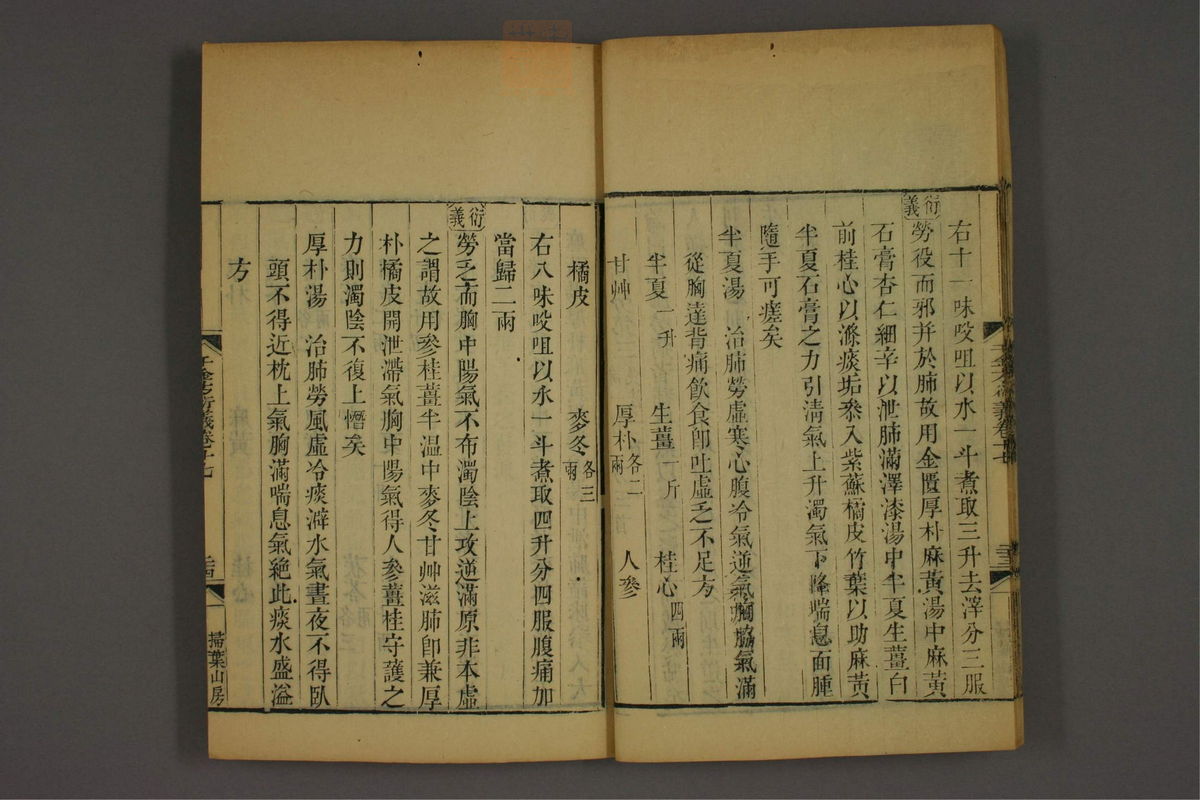 右十一味㕮咀以水一斗煮取三升去滓分三服
衍義
勞役而邪并於肺故用金匱厚朴麻黃湯中麻黃
石膏杏仁細辛以泄肺滿澤漆湯中半夏生薑白
前桂心以滌痰垢叅入紫蘇橘皮竹葉以助麻黃
半夏石膏之力引淸氣上升濁氣下降喘息面腫
隨手可瘥矣
半夏湯 治肺勞虛寒心腹冷氣逆氣胸脇氣滿
從胸達背痛飲食卽吐虛乏不足方
半夏一升 生薑一斤 桂心四兩
甘艸 厚朴各二兩 人參
橘皮 麥冬各三兩
右八味㕮咀以水一斗煮取四升分四服腹痛加
當歸二兩
衍義
勞乏而胸中陽氣不布濁陰上攻逆滿原非本虛
之謂故用參桂薑半温中麥冬甘艸滋肺卽兼厚
朴橘皮開泄滯氣胸中陽氣得人參薑桂守護之
力則濁陰不復上憯矣
厚朴湯 治肺勞風虛冷痰澼水氣晝夜不得臥
頭不得近枕上氣胸滿喘息氣絶此痰水盛溢
方
千金方衍義卷十七
三四
掃葉山房